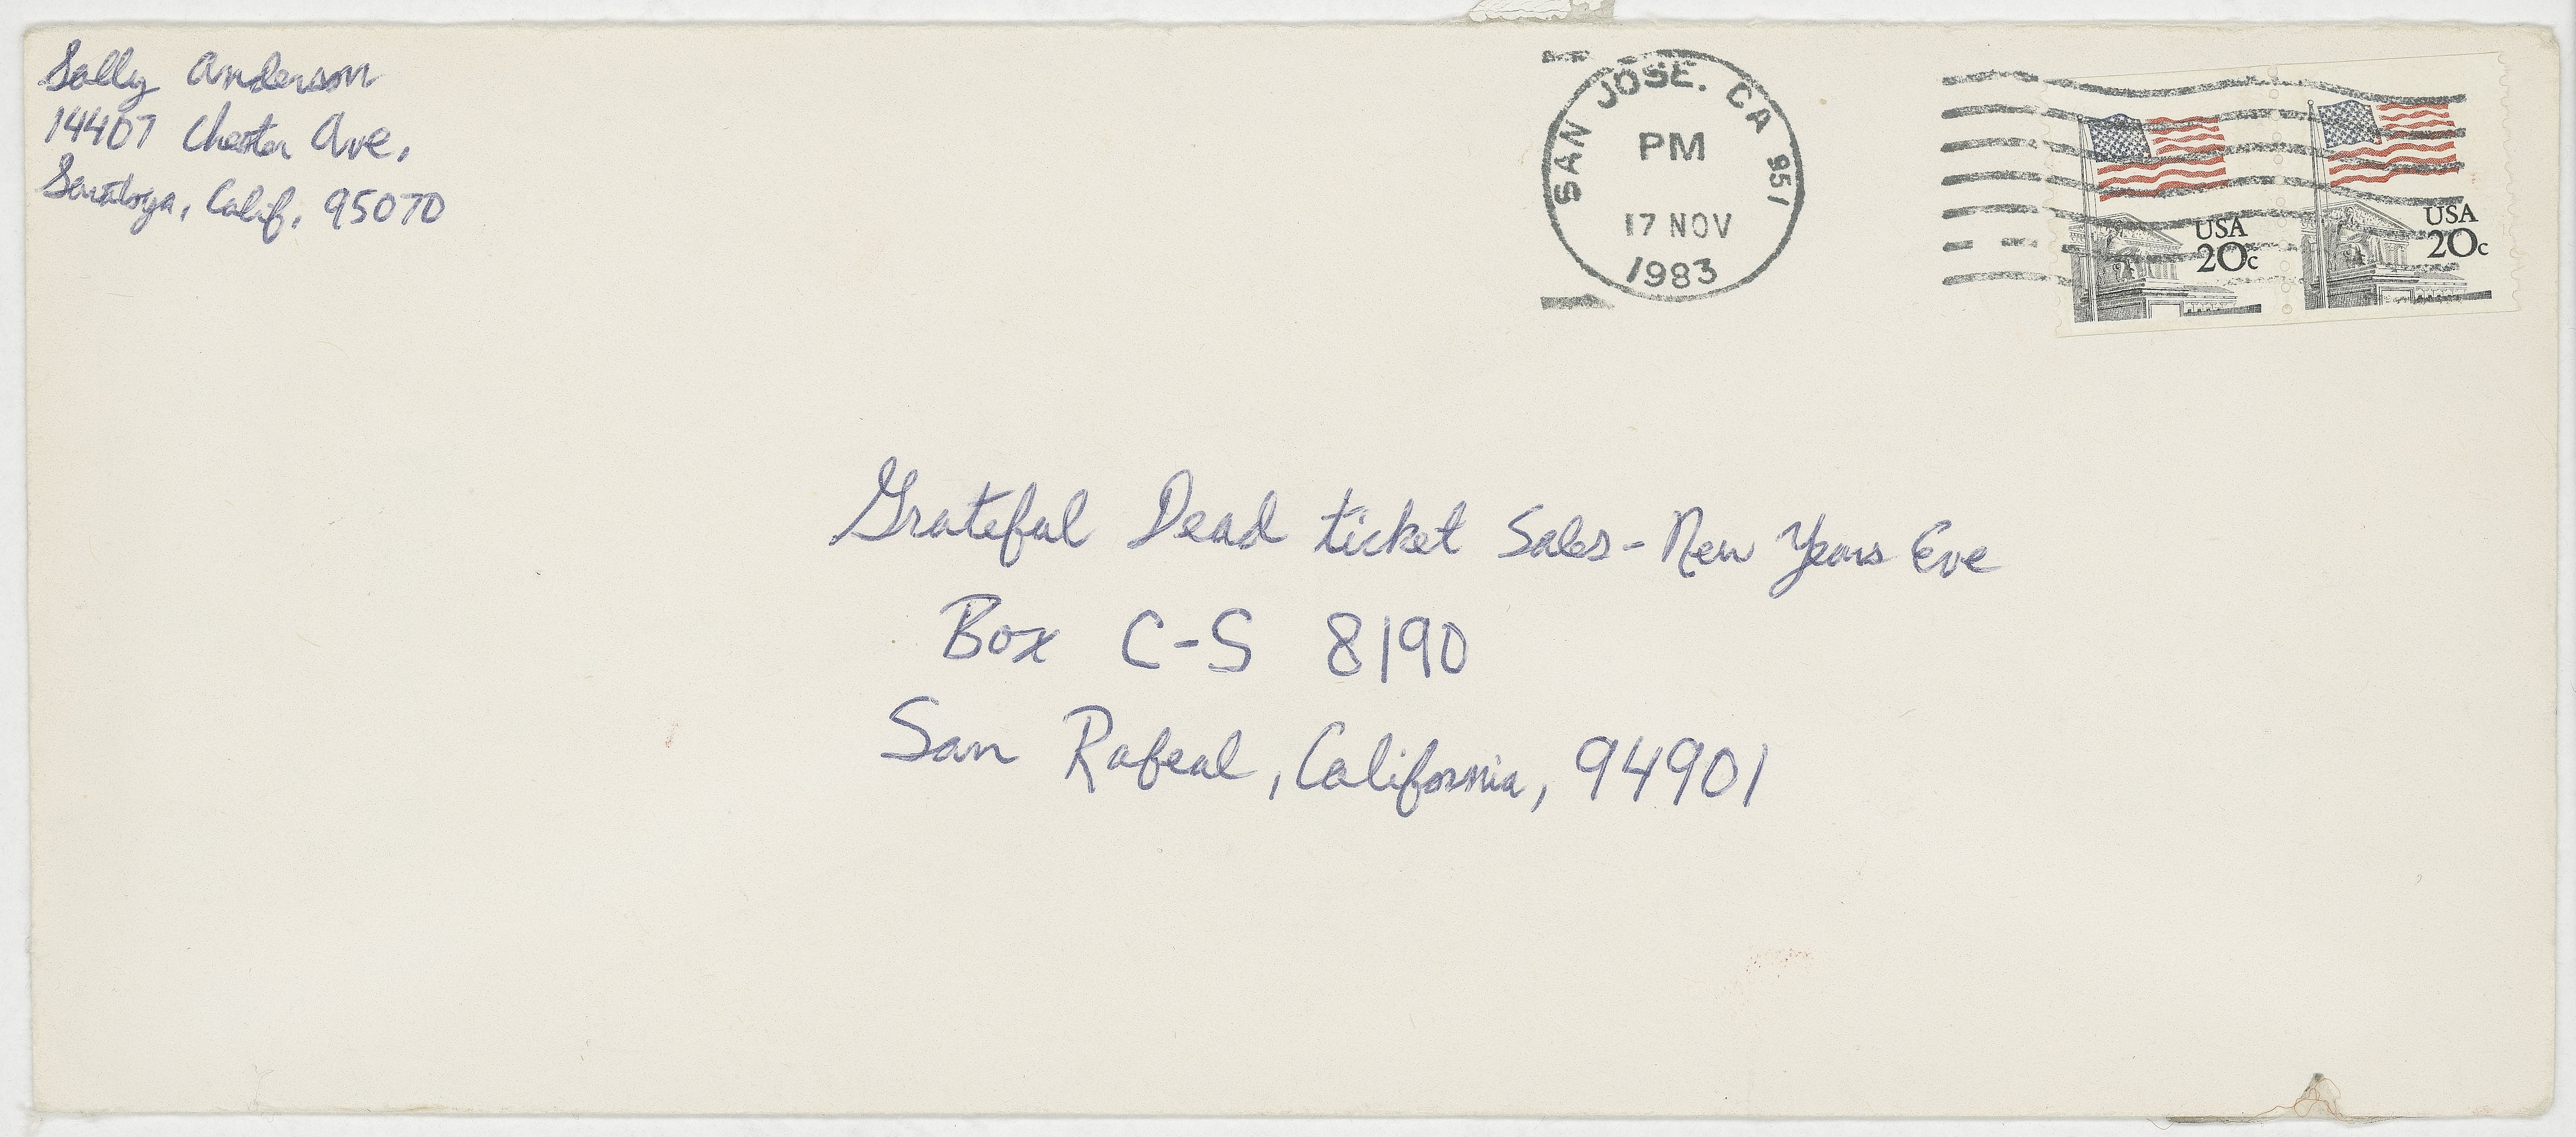 Sally Anderson
14407 Chester Ave.
Saratoga, Calif. 95070
SAN JOSE. CA 951
PM
17 NOV
1983
USA
20c
USA
20c
Grateful Dead ticket Sales - New Years Eve
Box C-S 8190
San Rafeal, California, 94901